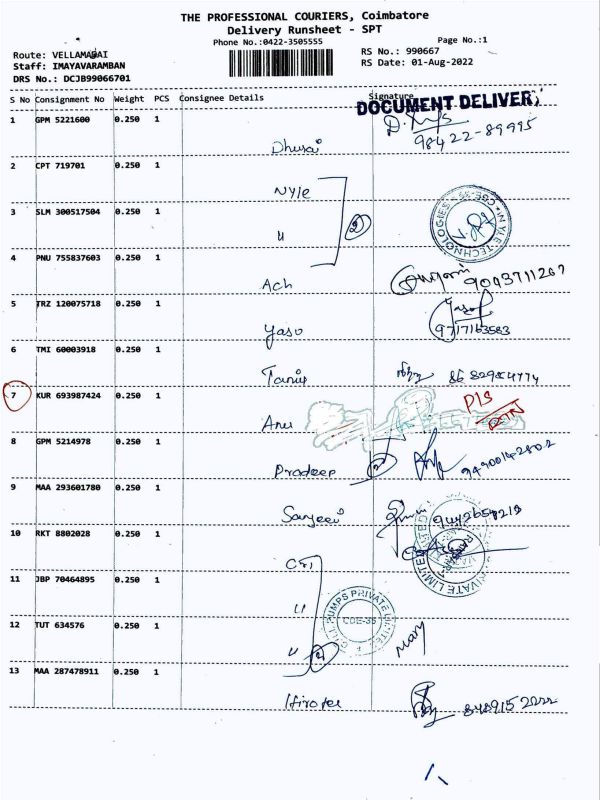 THE PROFESSIONAL COURIERS, Coimbatore
Delivery Runsheet - SPT
Phone No.:0422-3505555
Page No.:1
Route: VELLAMADAI
RS No.: 990667
Staff: IMAYAVARAMBAN
RS Date: 01-Aug-2022
DRS No.: DCJB99066701
S No Consignment No Weight PCS Consignee Details Signature
DOCUMENT DELIVER
1 GPM 5221600 0.250 1
98422-89995
2 CPT 719701 0.250 1
Nyle
3 SLM 300517504 0.250 1
u
2
NYLE TECHNOLOGIES CBE-35
4 PNU 755837603 0.250 1
Ach
9043711267
5 TRZ 120075718 0.250 1
Yaso
9717163583
6 TMI 60003918 0.250 1
7 KUR 693987424 0.250 1
Anu
8 GPM 5214978 0.250 1
Pradeep
9 MAA 293601780 0.250 1
Sanjeev
PRIVATE LIMITED
10 RKT 8802028 0.250 1
CRI
11 JBP 70464895 0.250 1
u
PUMPS PRIVATE LIMITED
CBE-35
12 TUT 634576 0.250 1
u
Mary
13 MAA 287478911 0.250 1